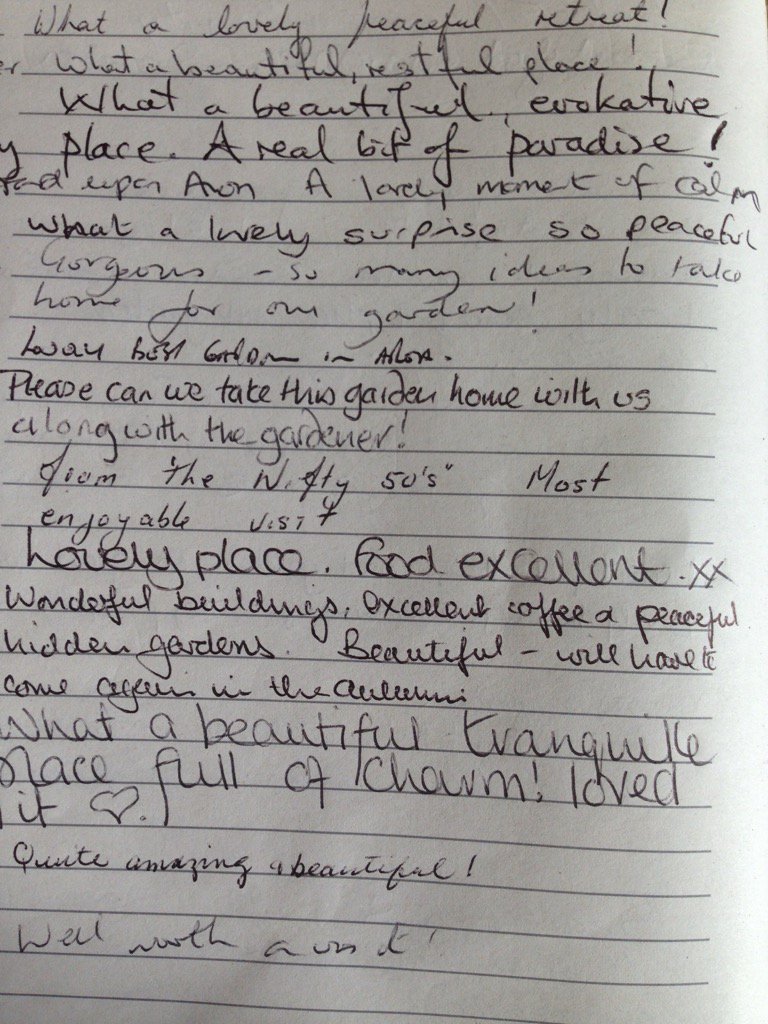 What a lovely peaceful retreat!
er What a beautiful, restful place!
What a beautiful, evokative
y place. A real bit of paradise!
upon Avon A lovely moment of calm
What a lovely surprise so peaceful
Gorgeous - so many ideas to take
home for our garden!
Best in
Please can we take this garden home with us
along with the gardener!
from "the Nifty 50's" Most
enjoyable visit
Lovely place. Food excellent. xx
Wonderful buildings, excellent coffee & peaceful
hidden gardens. Beautiful - will have to
come again in the autumn.
What a beautiful tranquille
place full of charm! loved
it ♡.
Quite amazing & beautiful!
Well worth a visit!